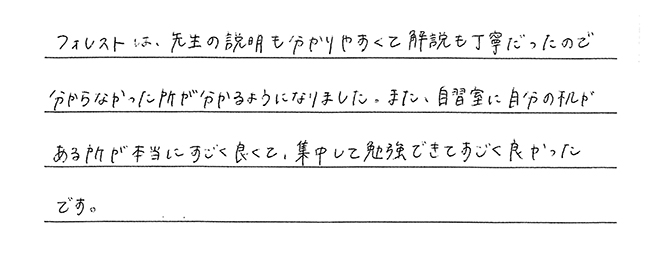 フォレストは、先生の説明も分かりやすくて解説も丁寧だったので
分からなかった所が分かるようになりました。また、自習室に自分の机が
ある所が本当にすごく良くて、集中して勉強できてすごく良かった
です。